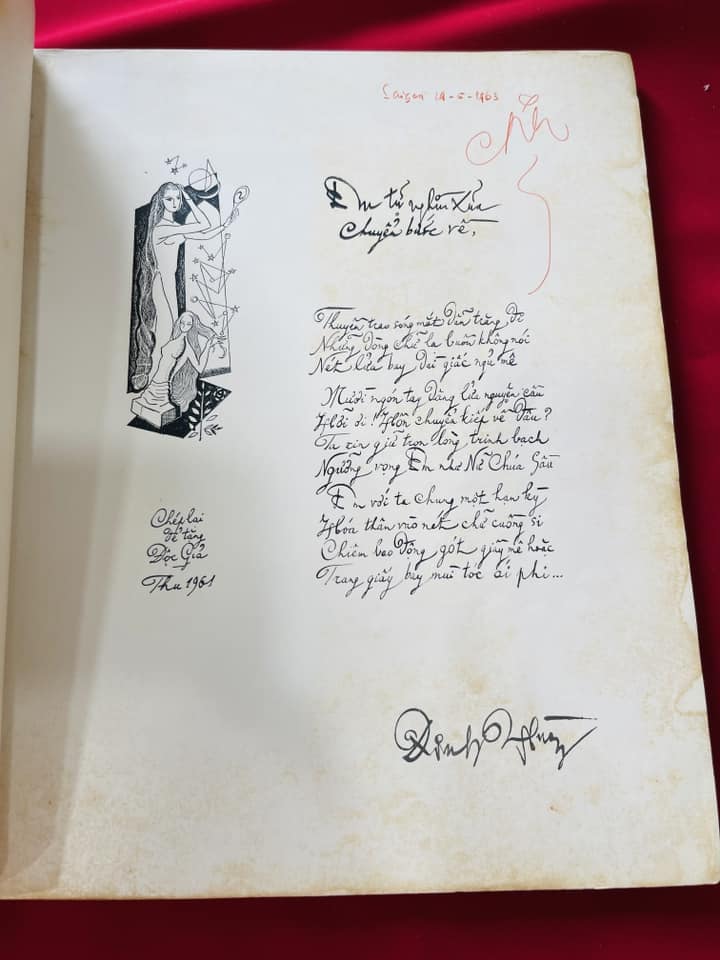 Saigon
Em từ nghìn xưa
chuyển bước về,
Thuyền trao sóng mắt dẫn trăng đi
Những dòng chữ lạ buồn không nói
Nét lửa bay dài giấc ngủ mê
Mười ngón tay dâng lửa nguyện cầu
Hỡi ơi! Hồn chuyển kiếp về đâu?
Ta xin giữ trọn lòng trinh bạch
Ngưỡng vọng Em như Nữ Chúa Sầu
Em với ta chung một hạn kỳ
Hóa thân vào nét chữ cuồng si
Chiêm bao động gót giầy mê hoặc
Trang giấy bay mùi tóc ái phi...
Chép lại
để tặng
Độc Giả
Thu 1961
Đinh Hùng